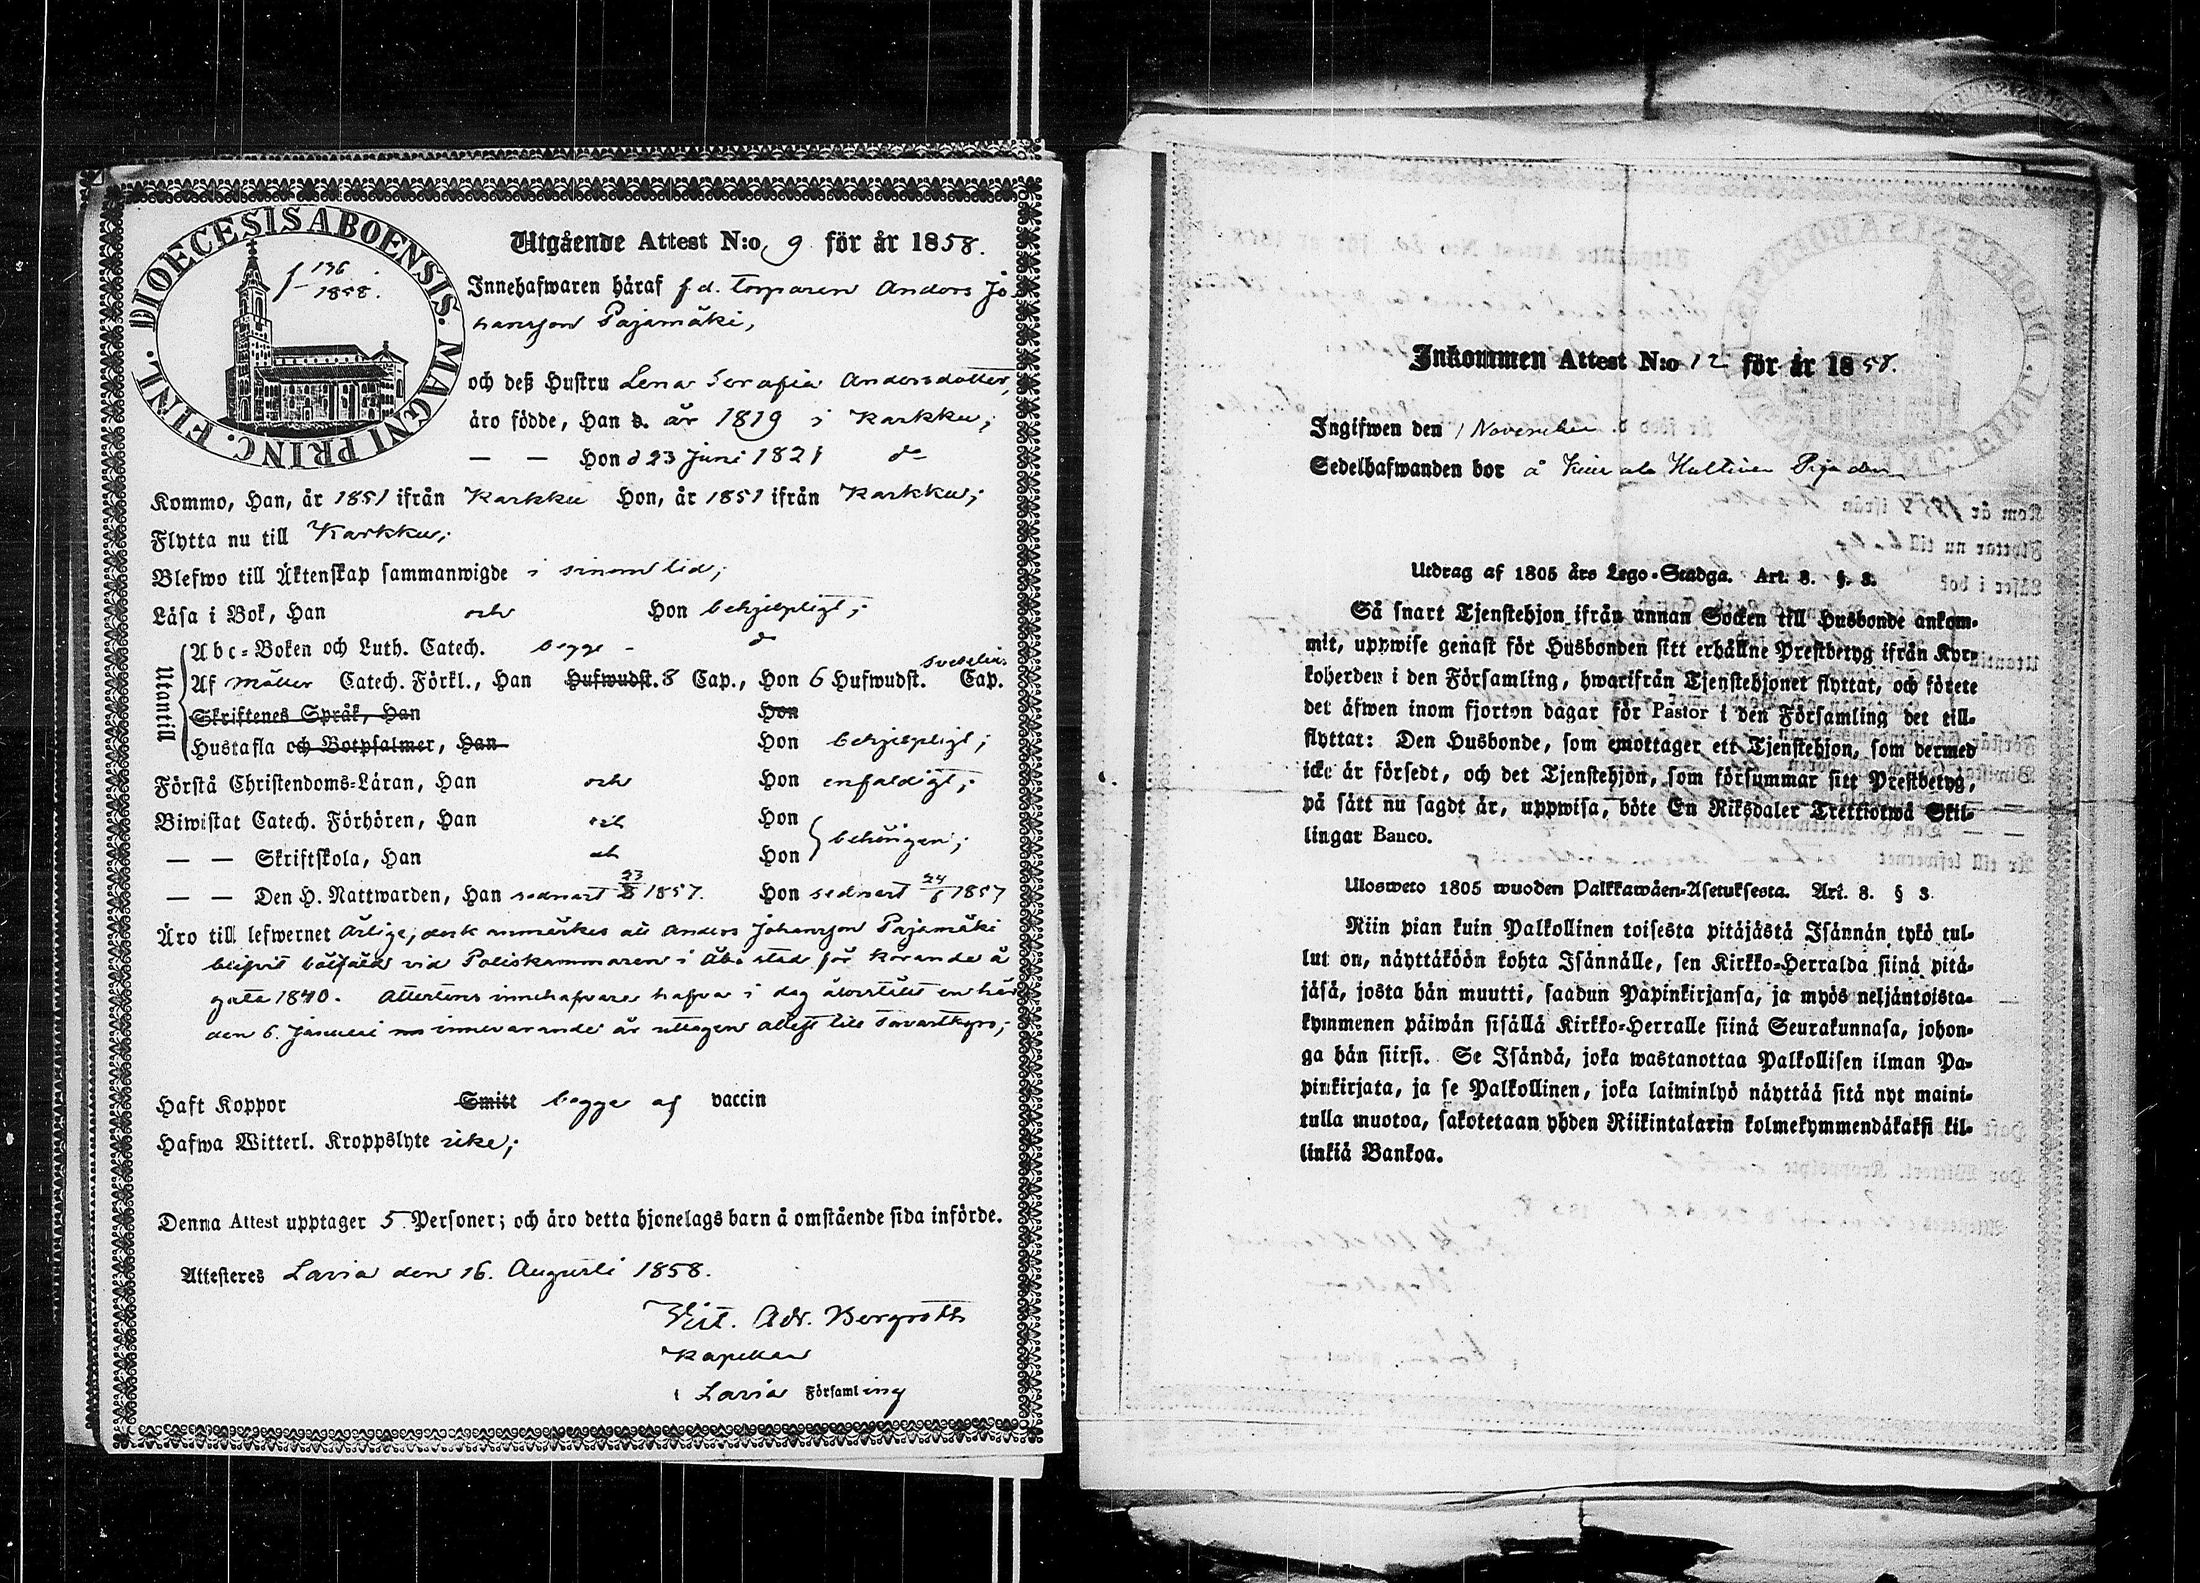 DIOECESIS ABOENSIS. MAGNI PRINC. FINL.
f 136
1858.
Utgående Attest N:o 9 för år 1858.
Innehafwaren häraf f.d. torparen Anders Jo-
hansson Pajamäki,
och deß Hustru Lena Serafia Andersdotter,
äro födde, Han d. år 1819 i Karkku;
— — Hon d 23 Juni 1821 do
Kommo, Han, år 1851 ifrån Karkku Hon, år 1851 ifrån Karkku;
Flytta nu till Karkku;
Blefwo till Äktenskap sammanwigde i sinom tid;
Läsa i Bok, Han och Hon behjelpligt;
Utantill
Abc-Boken och Luth. Catech. begge - d
Af Möller Catech. Förkl., Han Hufwudst. 8 Cap., Hon 6 Hufwudst. Cap.
Skriftenes Språk, Han Hon
Hustafla och Botpsalmer, Han Hon behjelpligt;
Förstå Christendoms-Läran, Han och Hon enfaldigt;
Biwistat Catech. Förhören, Han och Hon
behörigen;
— — Skriftskola, Han och Hon
— — Den H. Nattwarden, Han sednast 1857. Hon sednast 24/6 1857
Äro till lefwernet ärlige, dock anmärkes att Anders Johansson Pajamäki
blifvit bötfäld vid Poliskammaren i Åbo stad för körande å
gata 1840. Attestens innehafvare hafva i dag återstält en här
den 6. Januari innevarande år uttagen attest till Tavastkyro;
Haft Koppor Smitt begge af vaccin
Hafwa Witterl. Kroppslyte icke;
Denna Attest upptager 5 Personer; och äro detta hjonelags barn å omstående sida införde.
Attesteres Lavia den 16. Augusti 1858.
Vict. Adr. Bergroth
Kapellan
i Lavia Församling
Inkommen Attest N:o 12 för år 1858.
Ingifwen den 1 November
Sedelhafwanden bor å
Utdrag af 1805 års Lego-Stadga. Art. 8. §. 3.
Så snart Tjenstehjon ifrån annan Socken till Husbonde ankom-
mit, uppwise genast för Husbonden sitt erhållne Prestbetyg ifrån Kyr-
koherden i den Församling, hwarifrån Tjenstehjonet flyttat, och förete
det äfwen inom fjorton dagar för Pastor i den Församling det till-
flyttat: Den Husbonde, som emottager ett Tjenstehjon, som dermed
icke är försedt, och det Tjenstehjon, som försummar sitt Prestbetyg,
på sätt nu sagdt är, uppwisa, böte En Riksdaler Trettiotwå Skil-
lingar Banco.
Ulosweto 1805 wuoden Palkkawäen-Asetuksesta. Art. 8. § 3.
Niin pian kuin Palkollinen toisesta pitäjästä Isännän tykö tul-
lut on, näyttäköön kohta Isännälle, sen Kirkko-Herralda siinä pitä-
jäsä, josta hän muutti, saadun Papinkirjansa, ja myös neljäntoista-
kymmenen päiwän sisällä Kirkko-Herralle siinä Seurakunnasa, johon-
ga hän siirsi. Se Isändä, joka wastanottaa Palkollisen ilman Pa-
pinkirjata, ja se Palkollinen, joka laiminlyö näyttää sitä nyt maini-
tulla muotoa, sakotetaan yhden Riikintalarin kolmekymmendäkaksi kil-
linkiä Bankoa.